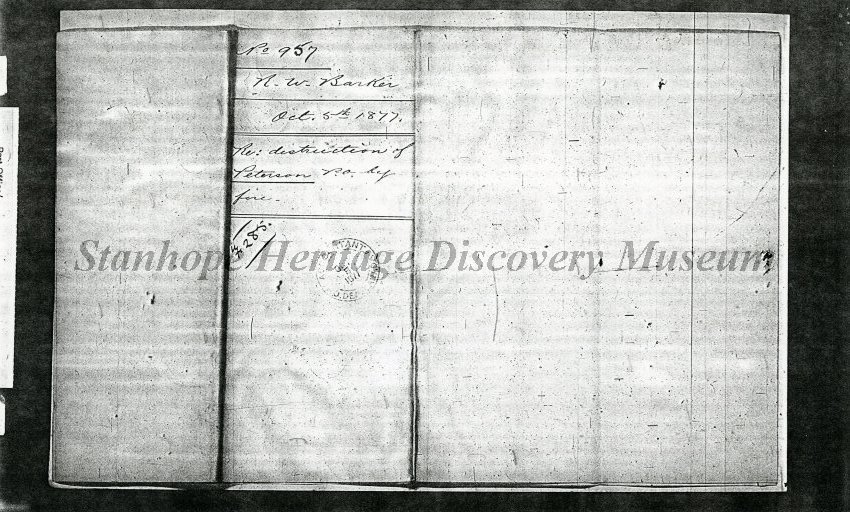 No 957
N. W. Barker
Oct. 5th 1877.
Re: distruction of
Peterson P.O. by
fire.
# 285.
Stanhope Heritage Discovery Museum